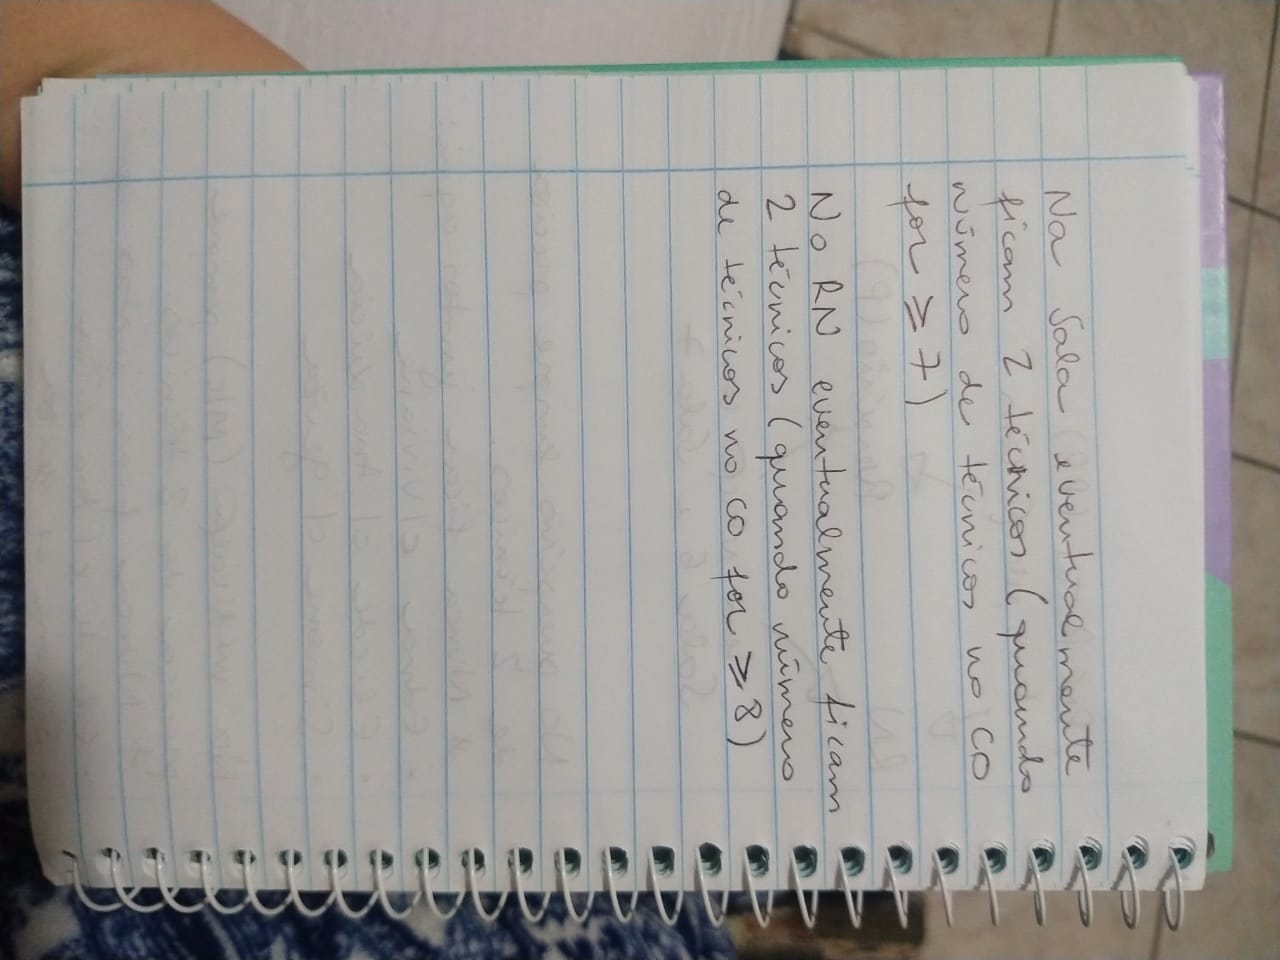 Na Sala eventualmente
ficam 2 técnicos (quando
número de técnicos no CO
for ≥ 7)
No RN eventualmente ficam
2 técnicos (quando número
de técnicos no CO for ≥ 8)